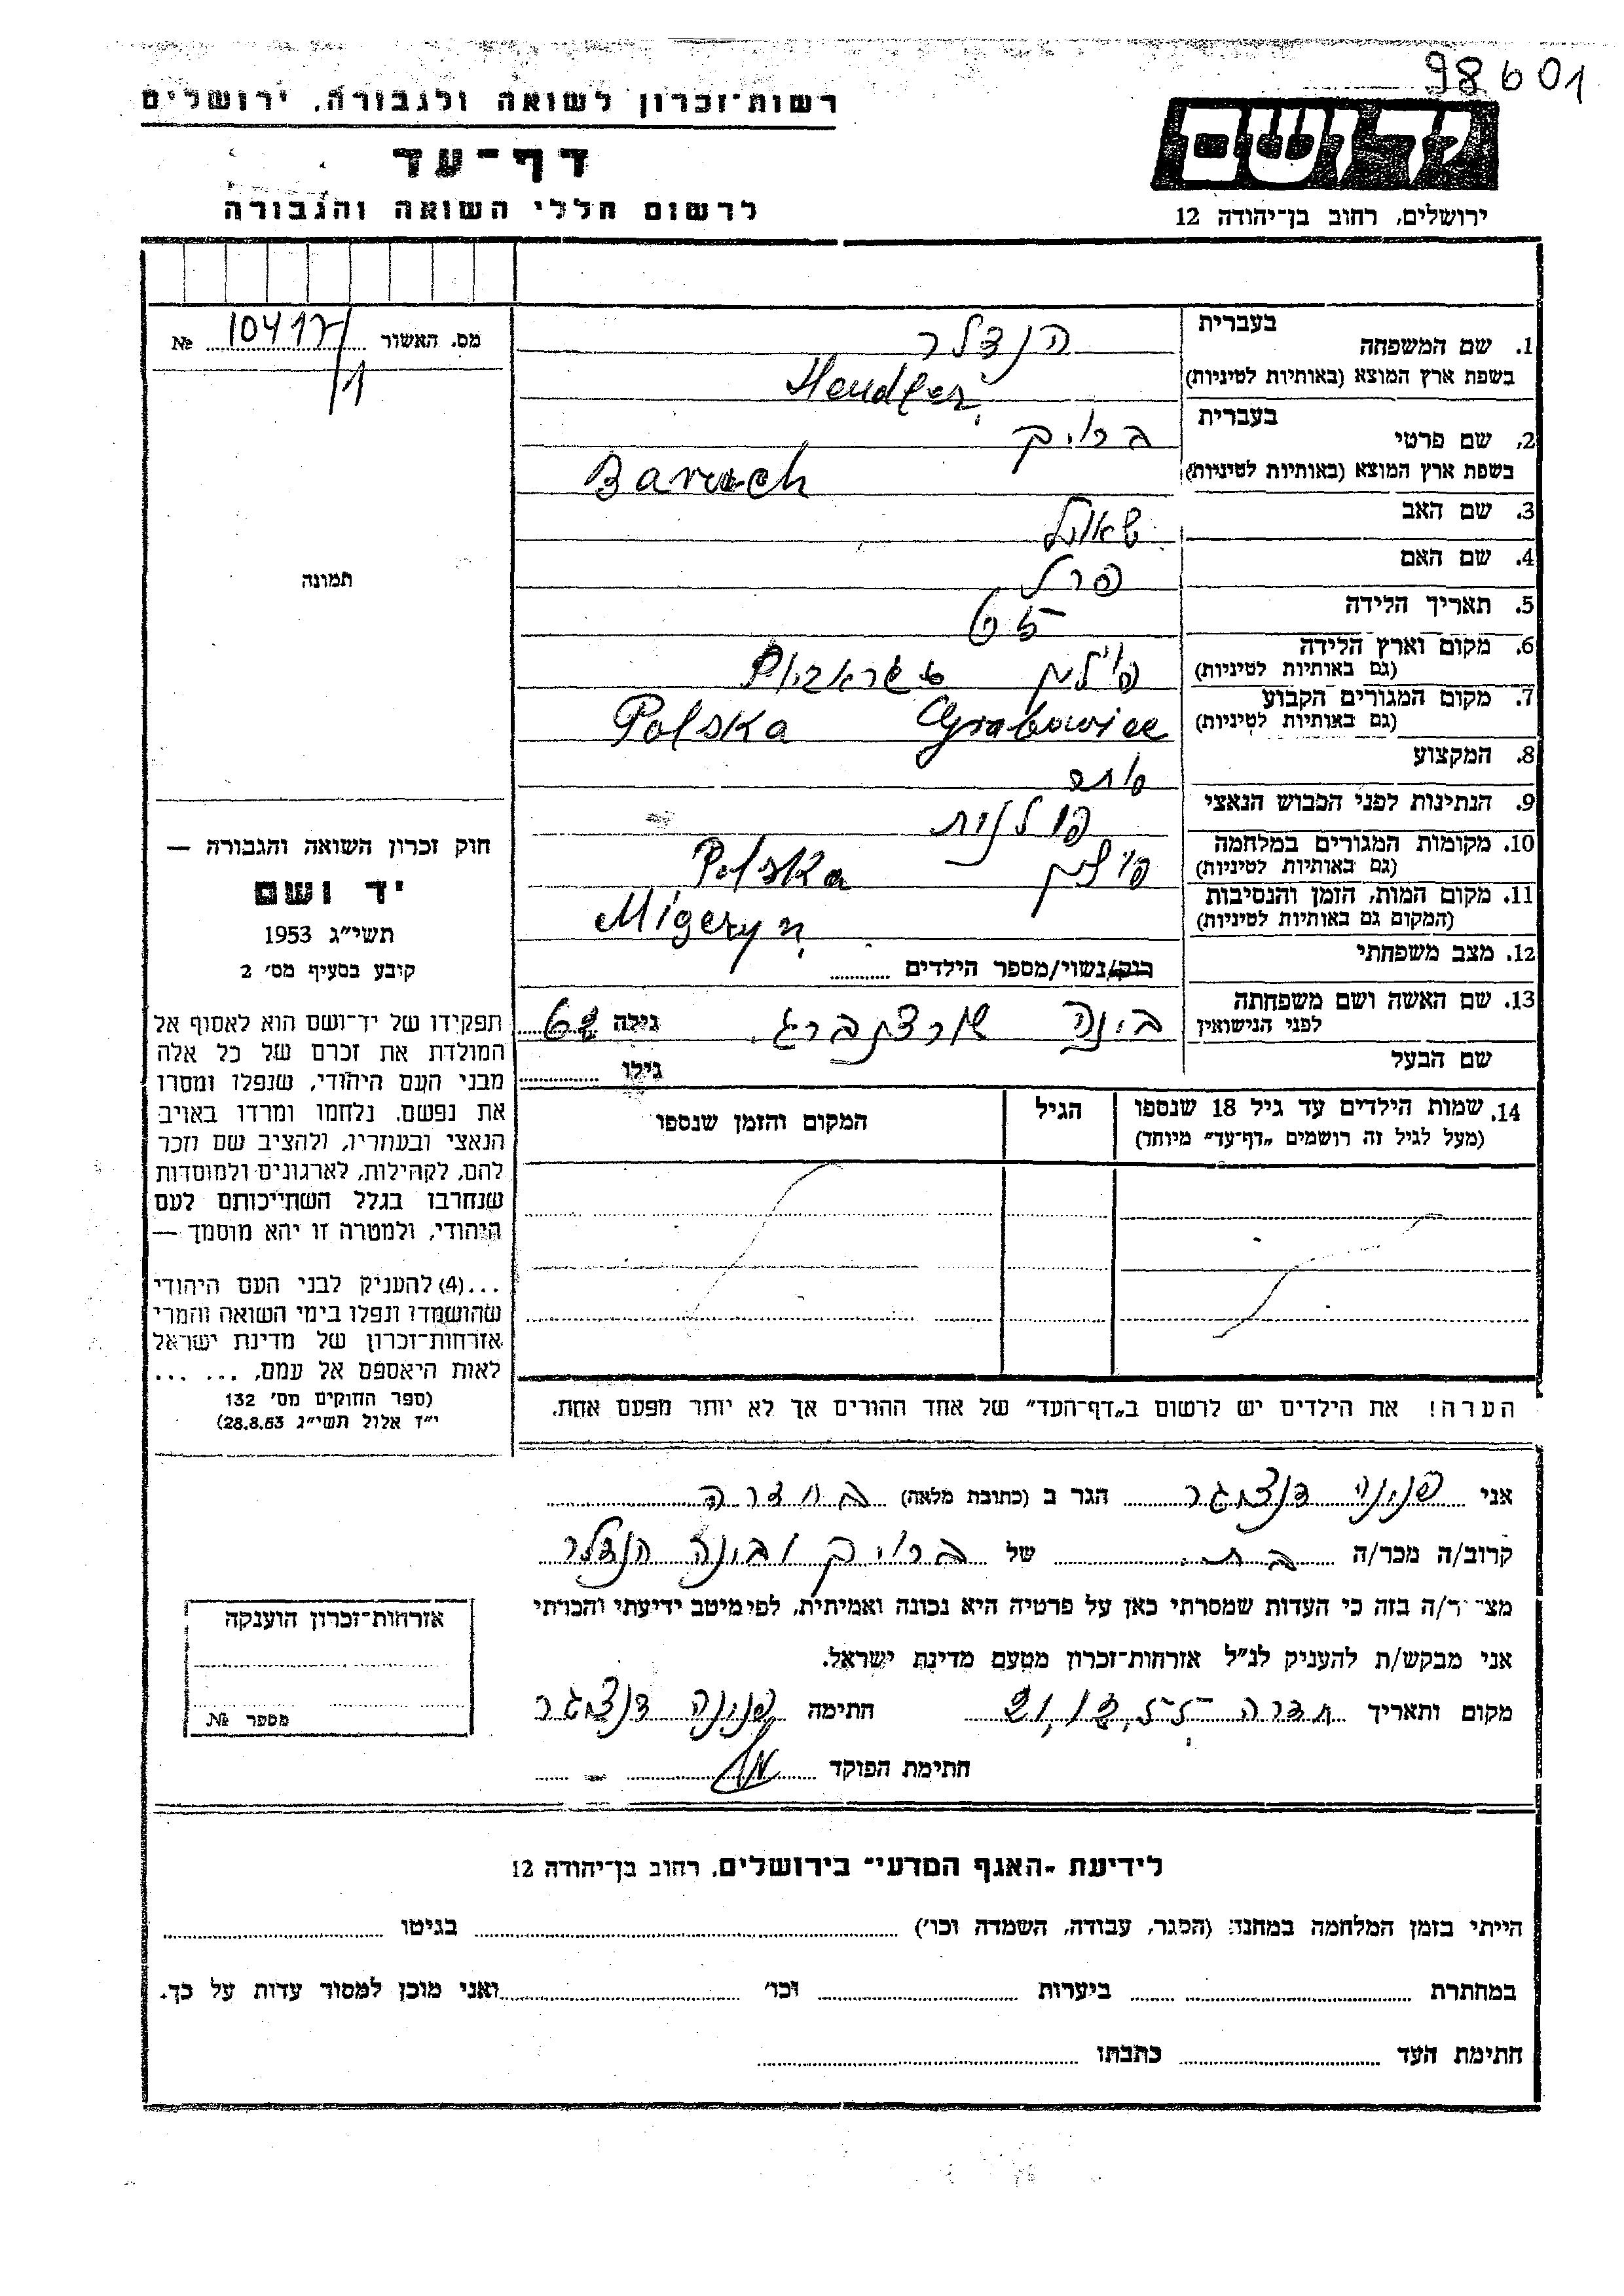 98601
רשות־זכרון לשואה ולגבורה, ירושלים
דף־עד
לרשום חללי השואה והגבורה
יד ושם
ירושלים, רחוב בן־יהודה 12
מס. האשור 10417/1 №
תמונה
חוק זכרון השואה והגבורה —
יד ושם
תשי״ג 1953
קובע בסעיף מס׳ 2
תפקידו של יד־ושם הוא לאסוף אל
המולדת את זכרם של כל אלה
מבני העם היהודי, שנפלו ומסרו
את נפשם, נלחמו ומרדו באויב
הנאצי ובעוזריו, ולהציב שם וזכר
להם, לקהילות, לארגונים ולמוסדות
שנחרבו בגלל השתייכותם לעם
היהודי, ולמטרה זו יהא מוסמך —
...(4) להעניק לבני העם היהודי
שהושמדו ונפלו בימי השואה והמרי
אזרחות־זכרון של מדינת ישראל
לאות היאספם אל עמם. ... ...
(ספר החוקים מס׳ 132
י״ד אלול תשי״ג 28.8.53)
1. שם המשפחה בעברית הנדלר
בשפת ארץ המוצא (באותיות לטיניות) Hendler
2. שם פרטי בעברית ברוך
בשפת ארץ המוצא (באותיות לטיניות) Baruch
3. שם האב שאול
4. שם האם פרל
5. תאריך הלידה
6. מקום וארץ הלידה
(גם באותיות לטיניות) פולין
7. מקום המגורים הקבוע
(גם באותיות לטיניות) Grabowiec Polska
8. המקצוע סוחר
9. הנתינות לפני הכבוש הנאצי פולנית
10. מקומות המגורים במלחמה
(גם באותיות לטיניות) פולין Polska
11. מקום המות, הזמן והנסיבות
(המקום גם באותיות לטיניות) Migeryn
12. מצב משפחתי רווק/נשוי/מספר הילדים
13. שם האשה ושם משפחתה
לפני הנישואין בינה שורצברג גילה
שם הבעל גילו
14. שמות הילדים עד גיל 18 שנספו
(מעל לגיל זה רושמים „דף־עד״ מיוחד)
הגיל
המקום והזמן שנספו
הערה! את הילדים יש לרשום ב„דף־העד״ של אחד ההורים אך לא יותר מפעם אחת.
אני פנינה דנציגר הגר ב (כתובת מלאה) בחדרה
קרוב/ה מכר/ה בת של ברוך ובינה הנדלר
מצהיר/ה בזה כי העדות שמסרתי כאן על פרטיה היא נכונה ואמיתית, לפי מיטב ידיעתי והכרתי
אני מבקש/ת להעניק לנ״ל אזרחות־זכרון מטעם מדינת ישראל.
מקום ותאריך חדרה חתימה פנינה דנציגר
חתימת הפוקד
אזרחות־זכרון הוענקה
מספר №
לידיעת „האגף המדעי״ בירושלים, רחוב בן־יהודה 12
הייתי בזמן המלחמה במחנה: (הסגר, עבודה, השמדה וכו׳) בגיטו
במחתרת ביערות וכו׳ ואני מוכן למסור עדות על כך.
חתימת העד כתבתו